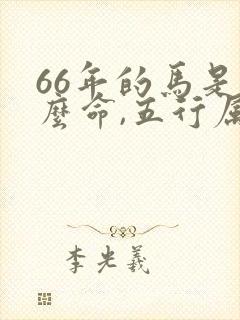 66年的馬是
麼命,五行屬
李光羲